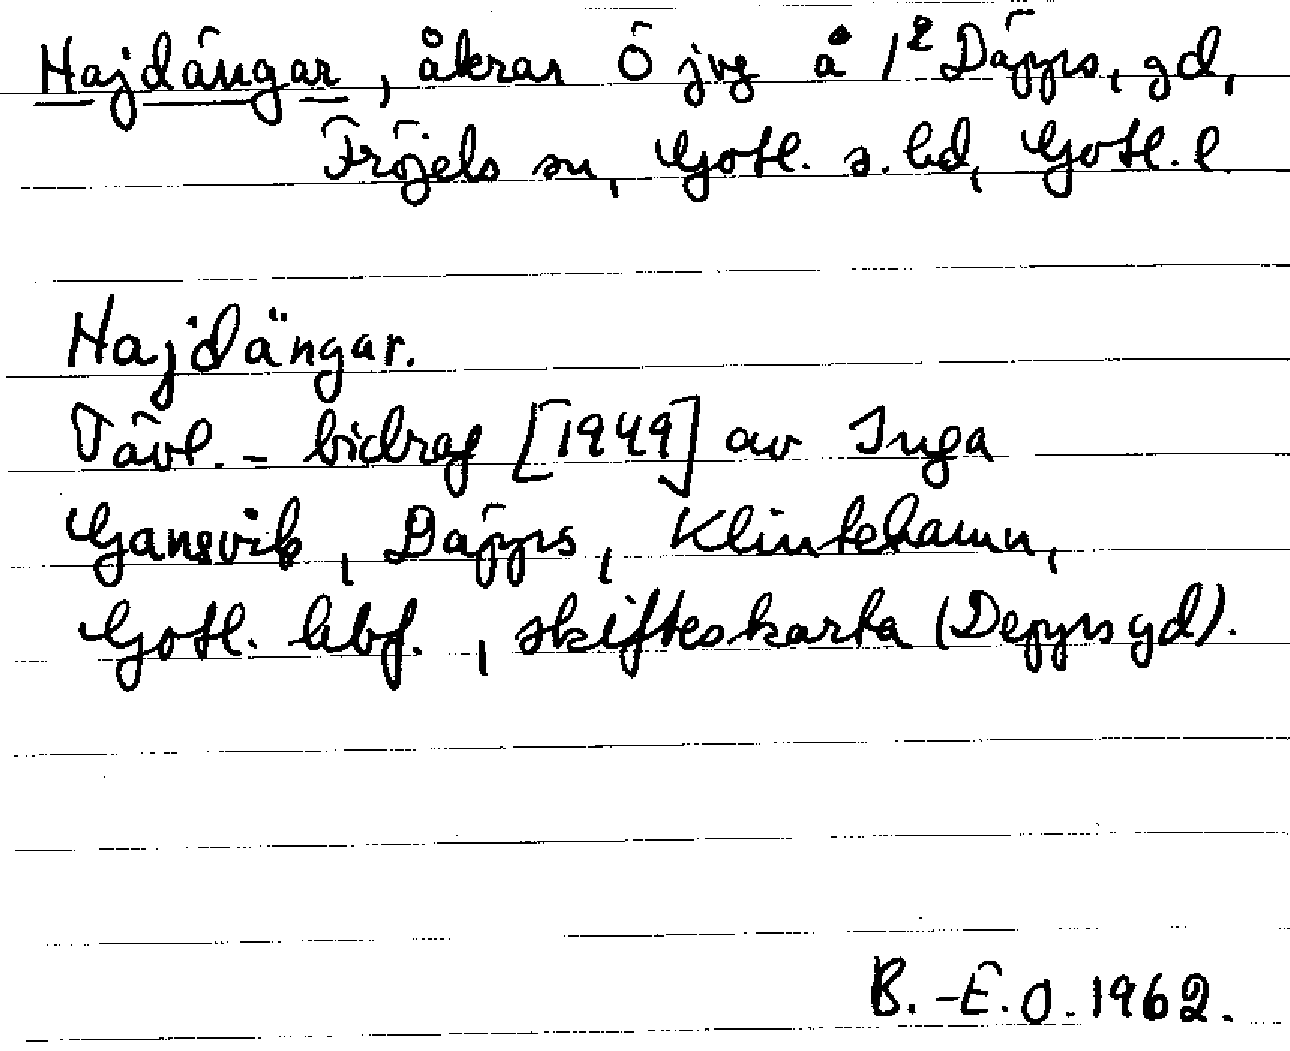 Hajdängar, åkrar Ö jvg å 1² Däpps, gd,
Fröjels sn, Gotl. s. hd, Gotl. l
Hajdängar.
Tävl. - bidrag [1949] av Inga
Gansvik, Däpps, Klintehamn,
Gotl. hbf., skifteskarta (Depps gd).
B.-E. O. 1962.